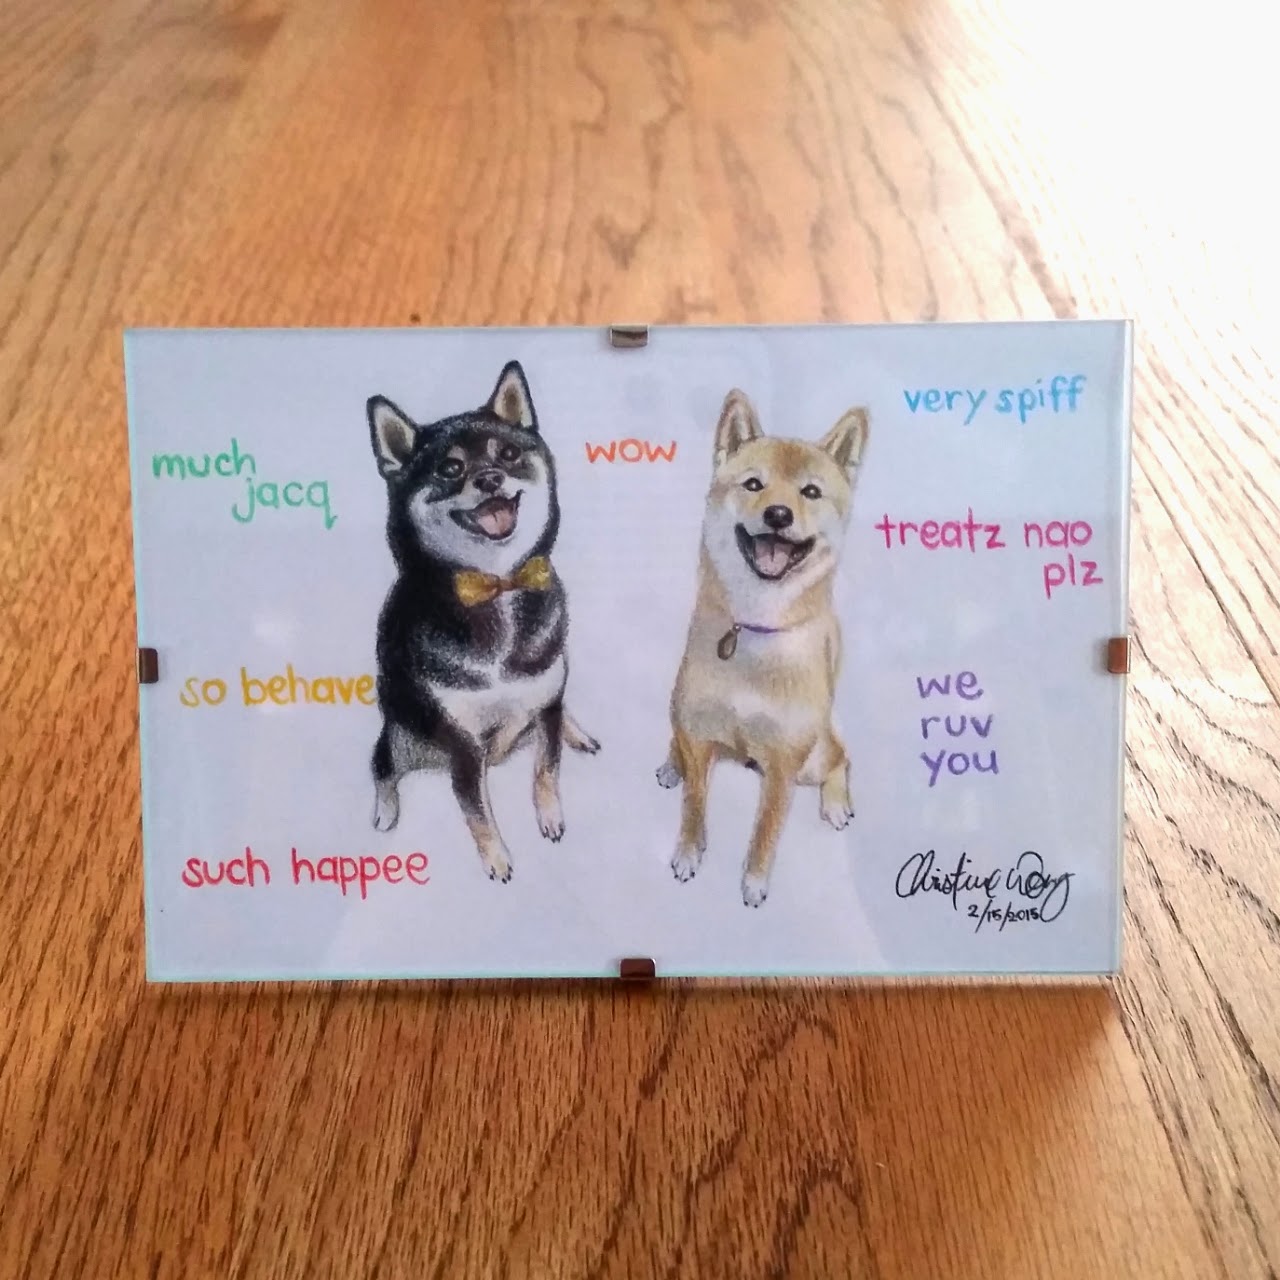 very spiff
much
jacq
wow
treatz nao
plz
so behave
we
ruv
you
such happee
Christine Wong
2/15/2015